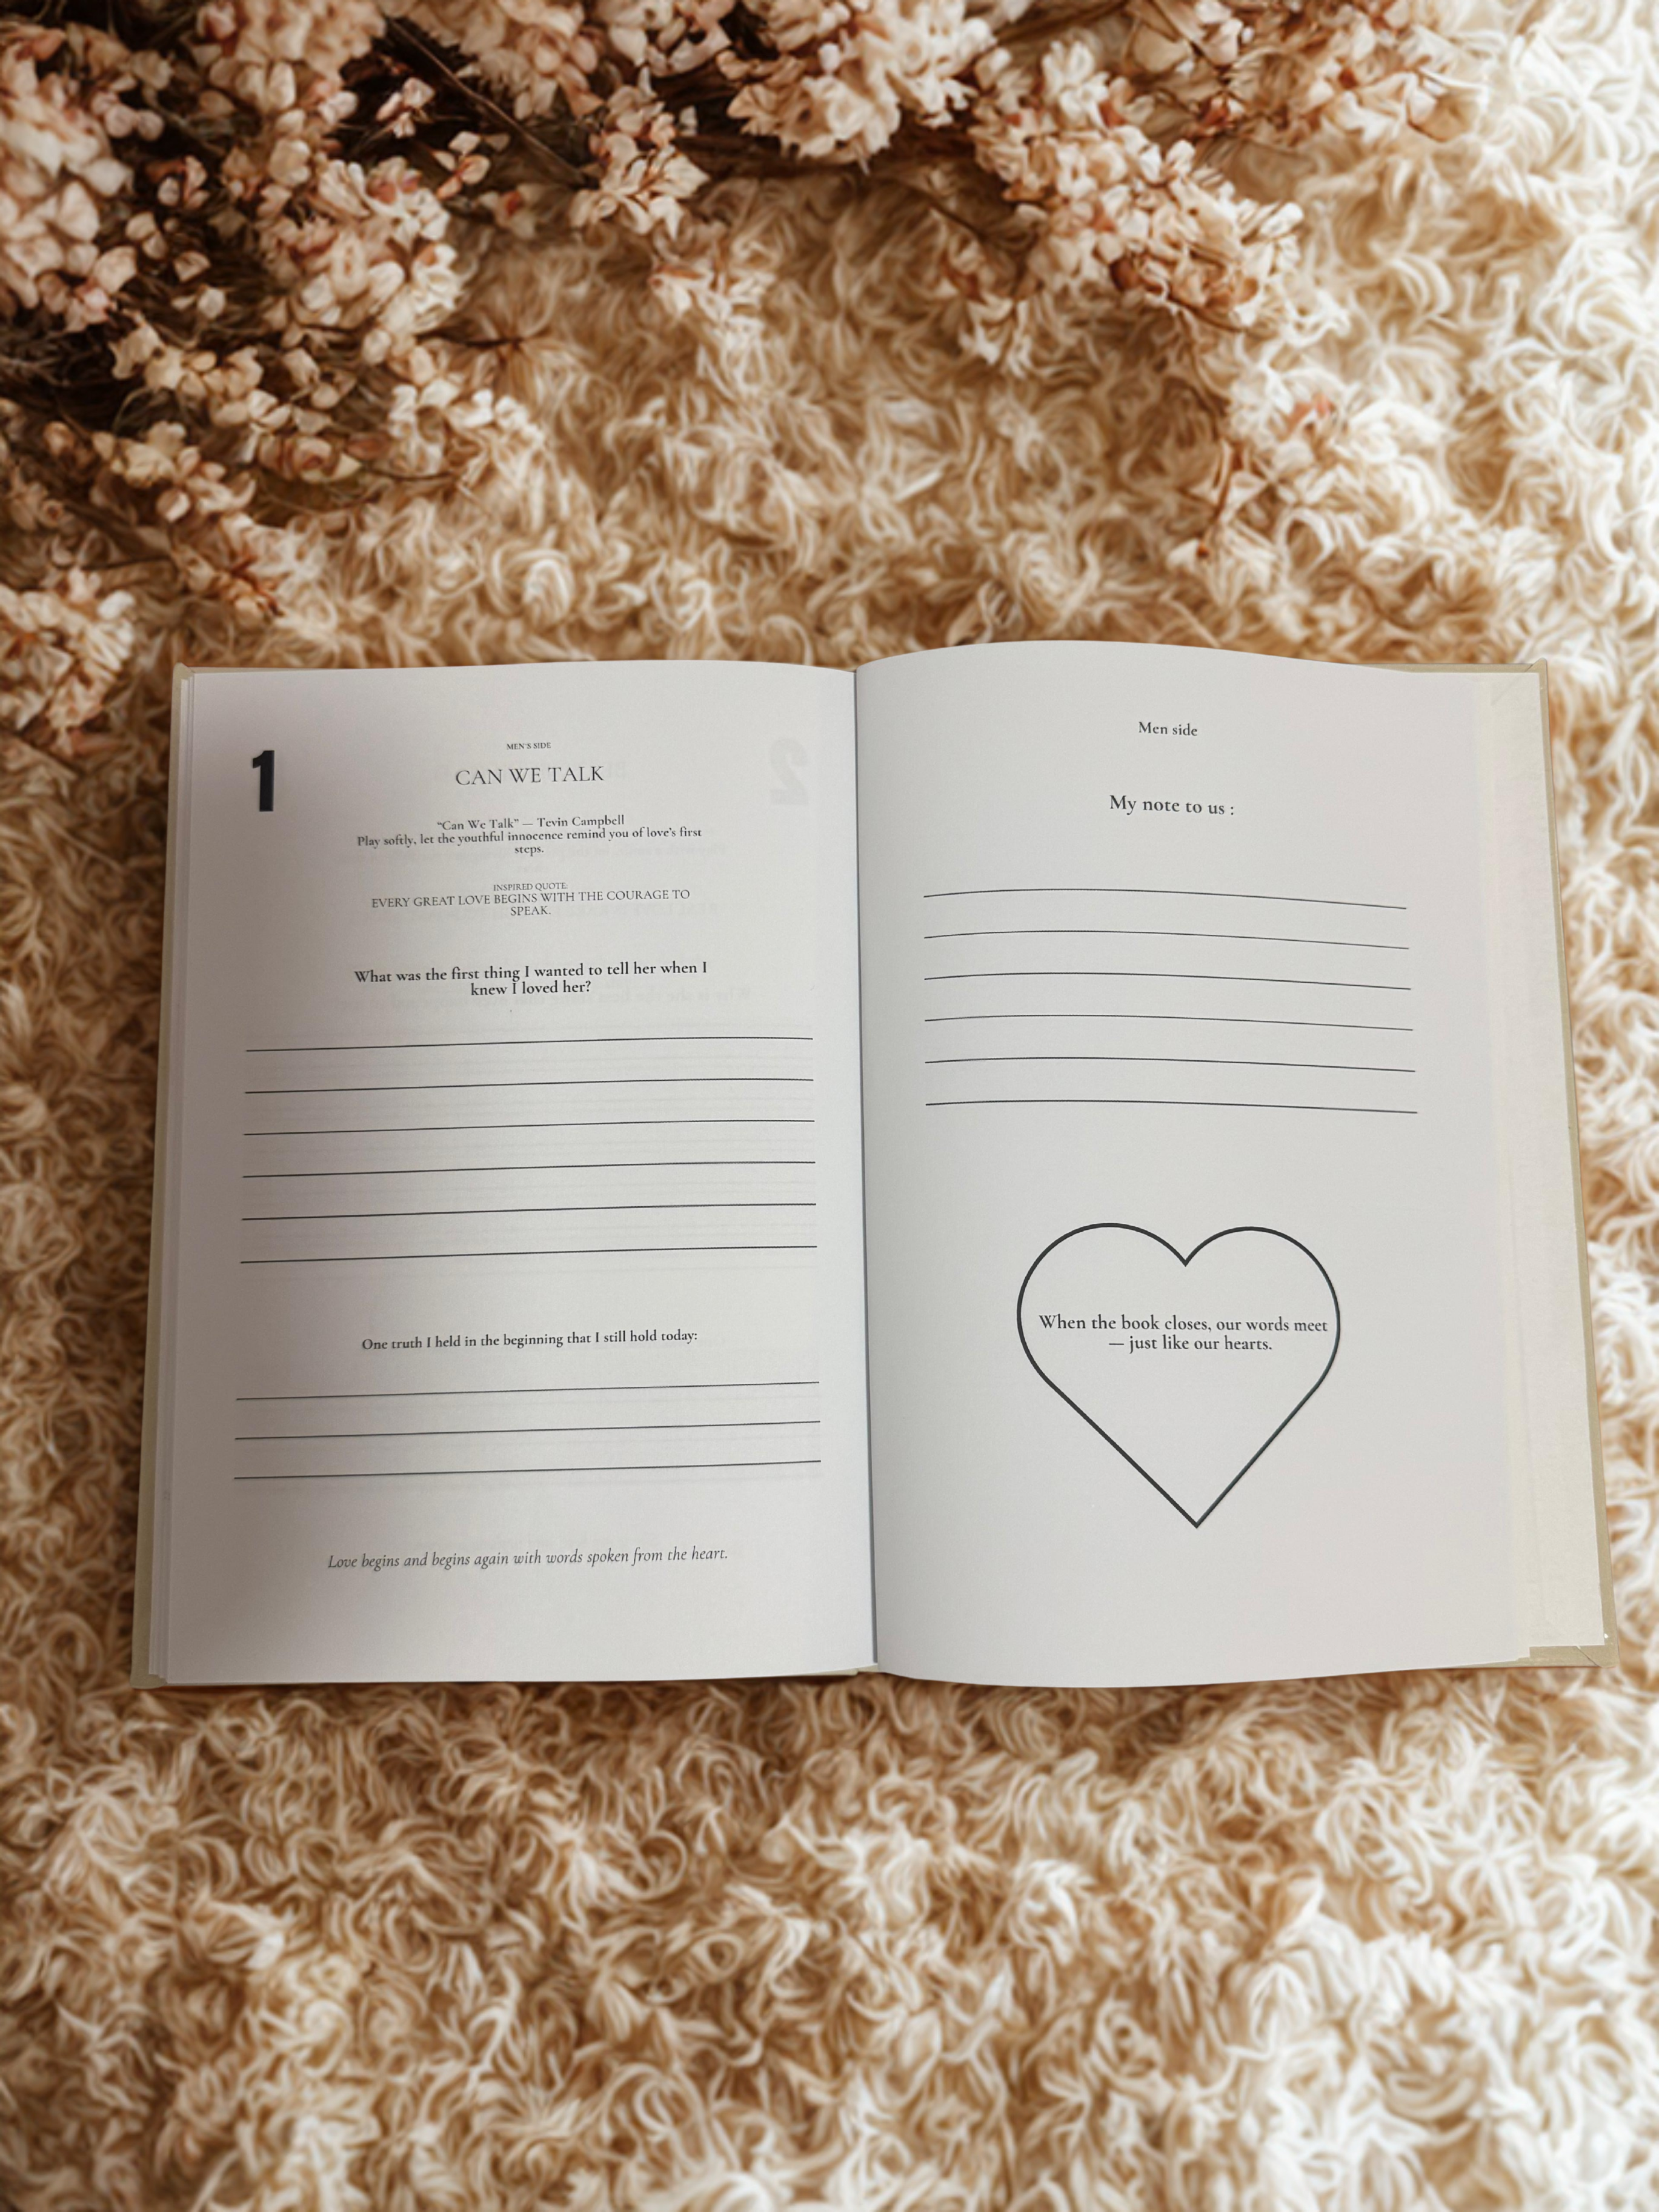 1
MEN'S SIDE
CAN WE TALK
"Can We Talk" — Tevin Campbell
Play softly, let the youthful innocence remind you of love's first
steps.
INSPIRED QUOTE:
EVERY GREAT LOVE BEGINS WITH THE COURAGE TO
SPEAK.
What was the first thing I wanted to tell her when I
knew I loved her?
One truth I held in the beginning that I still hold today:
Love begins and begins again with words spoken from the heart.
Men side
My note to us :
When the book closes, our words meet
— just like our hearts.